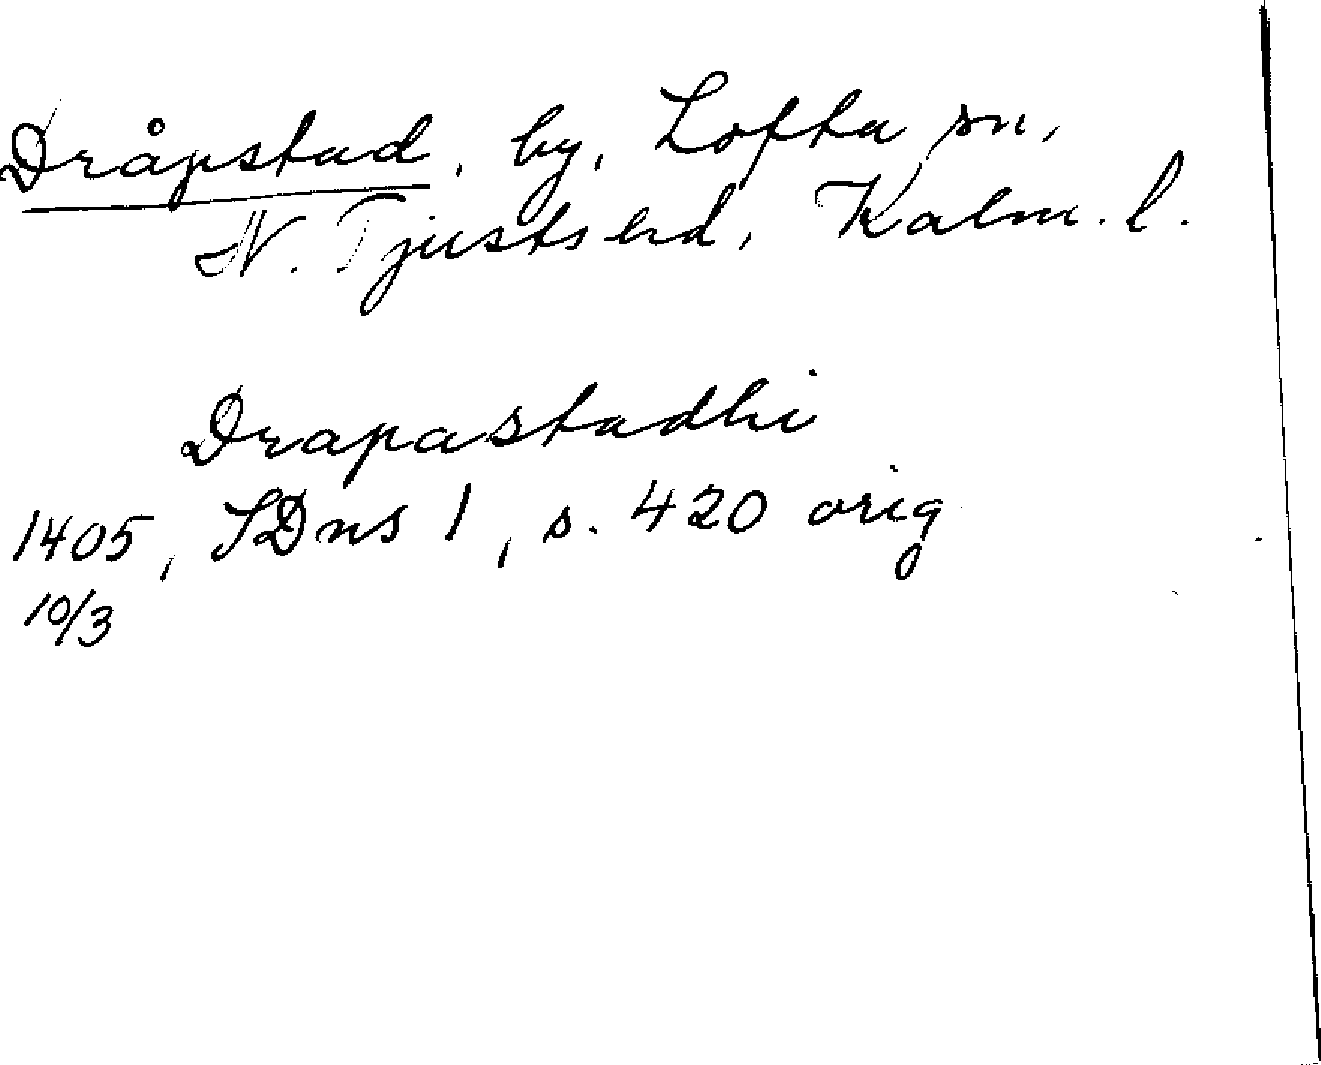 Dråpstad, by, Lofta sn,
N. Tjusts hd, Kalm. l.
Drapastadhi
1405, SDns 1, s. 420 orig
10/3